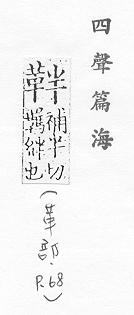 四聲篇海
靽
補半切
羈絆也
(革部. P.68)